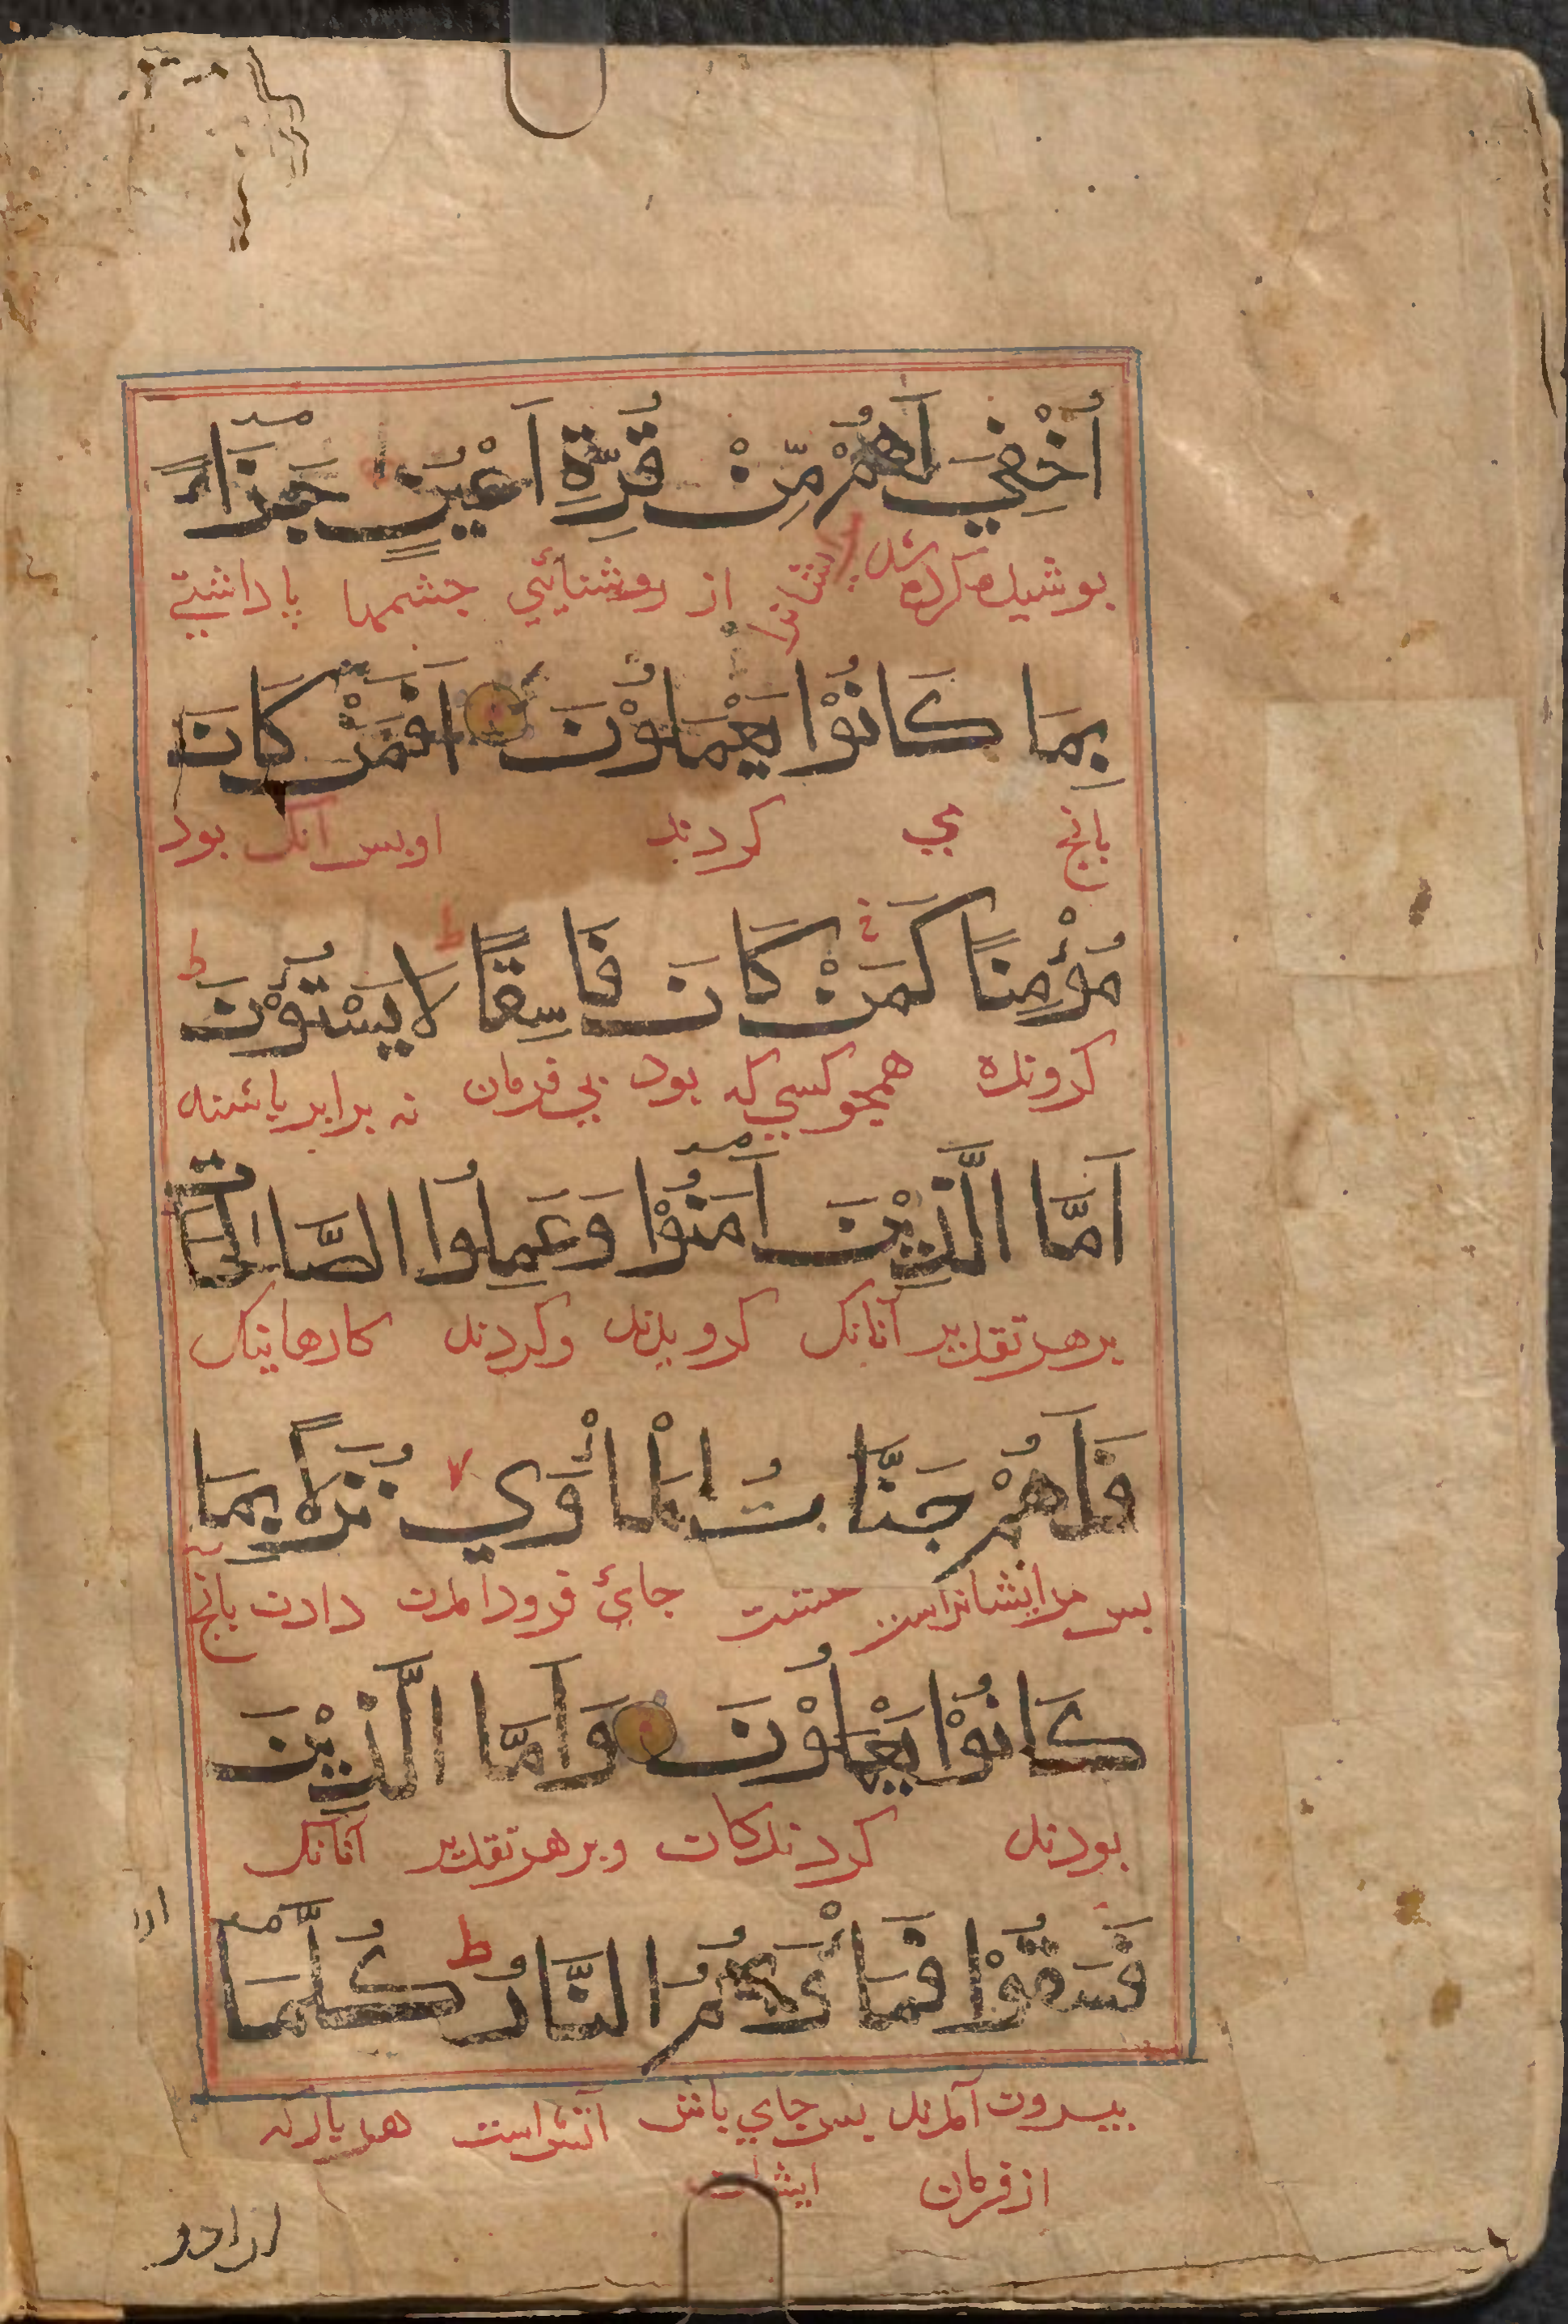 أُخْفِيَ لَهُمْ مِّنْ قُرَّةِ اَعْيُنٍ جَزَاءً
پوشیده کرده شد ایشانرا از روشنائي چشمها پاداشتي
بِمَا كَانُوْا يَعْمَلُوْنَ اَفَمَنْ كَانَ
بانچ می کردند اوپس آنک بود
مُؤْمِنًا كَمَنْ كَانَ فَاسِقًا لَا يَسْتَوٗنَ
کرونده همچو کسي که بود بي فرمان نه برابر باشند
اَمَّا الَّذِيْنَ اٰمَنُوْا وَعَمِلُوا الصَّالِحَاتِ
برهر تقدیر آنانک کرویدند وکردند کارها نیک
فَلَهُمْ جَنَّاتُ الْمَأْوَي نُزُلًا بِمَا
پس مرایشانراست جاىٔ فرود امدن دادن بانچ
كَانُوْا يَعْمَلُوْنَ وَاَمَّا الَّذِيْنَ
بودند کردندکان وبرهر تقدیر آنانک
فَسَقُوْا فَمَأْوَهُمُ النَّارُ كُلَّمَا
بیرون آمدند پس جاي باش آتش است هر بار که
از فرمان ایشان
ارادو